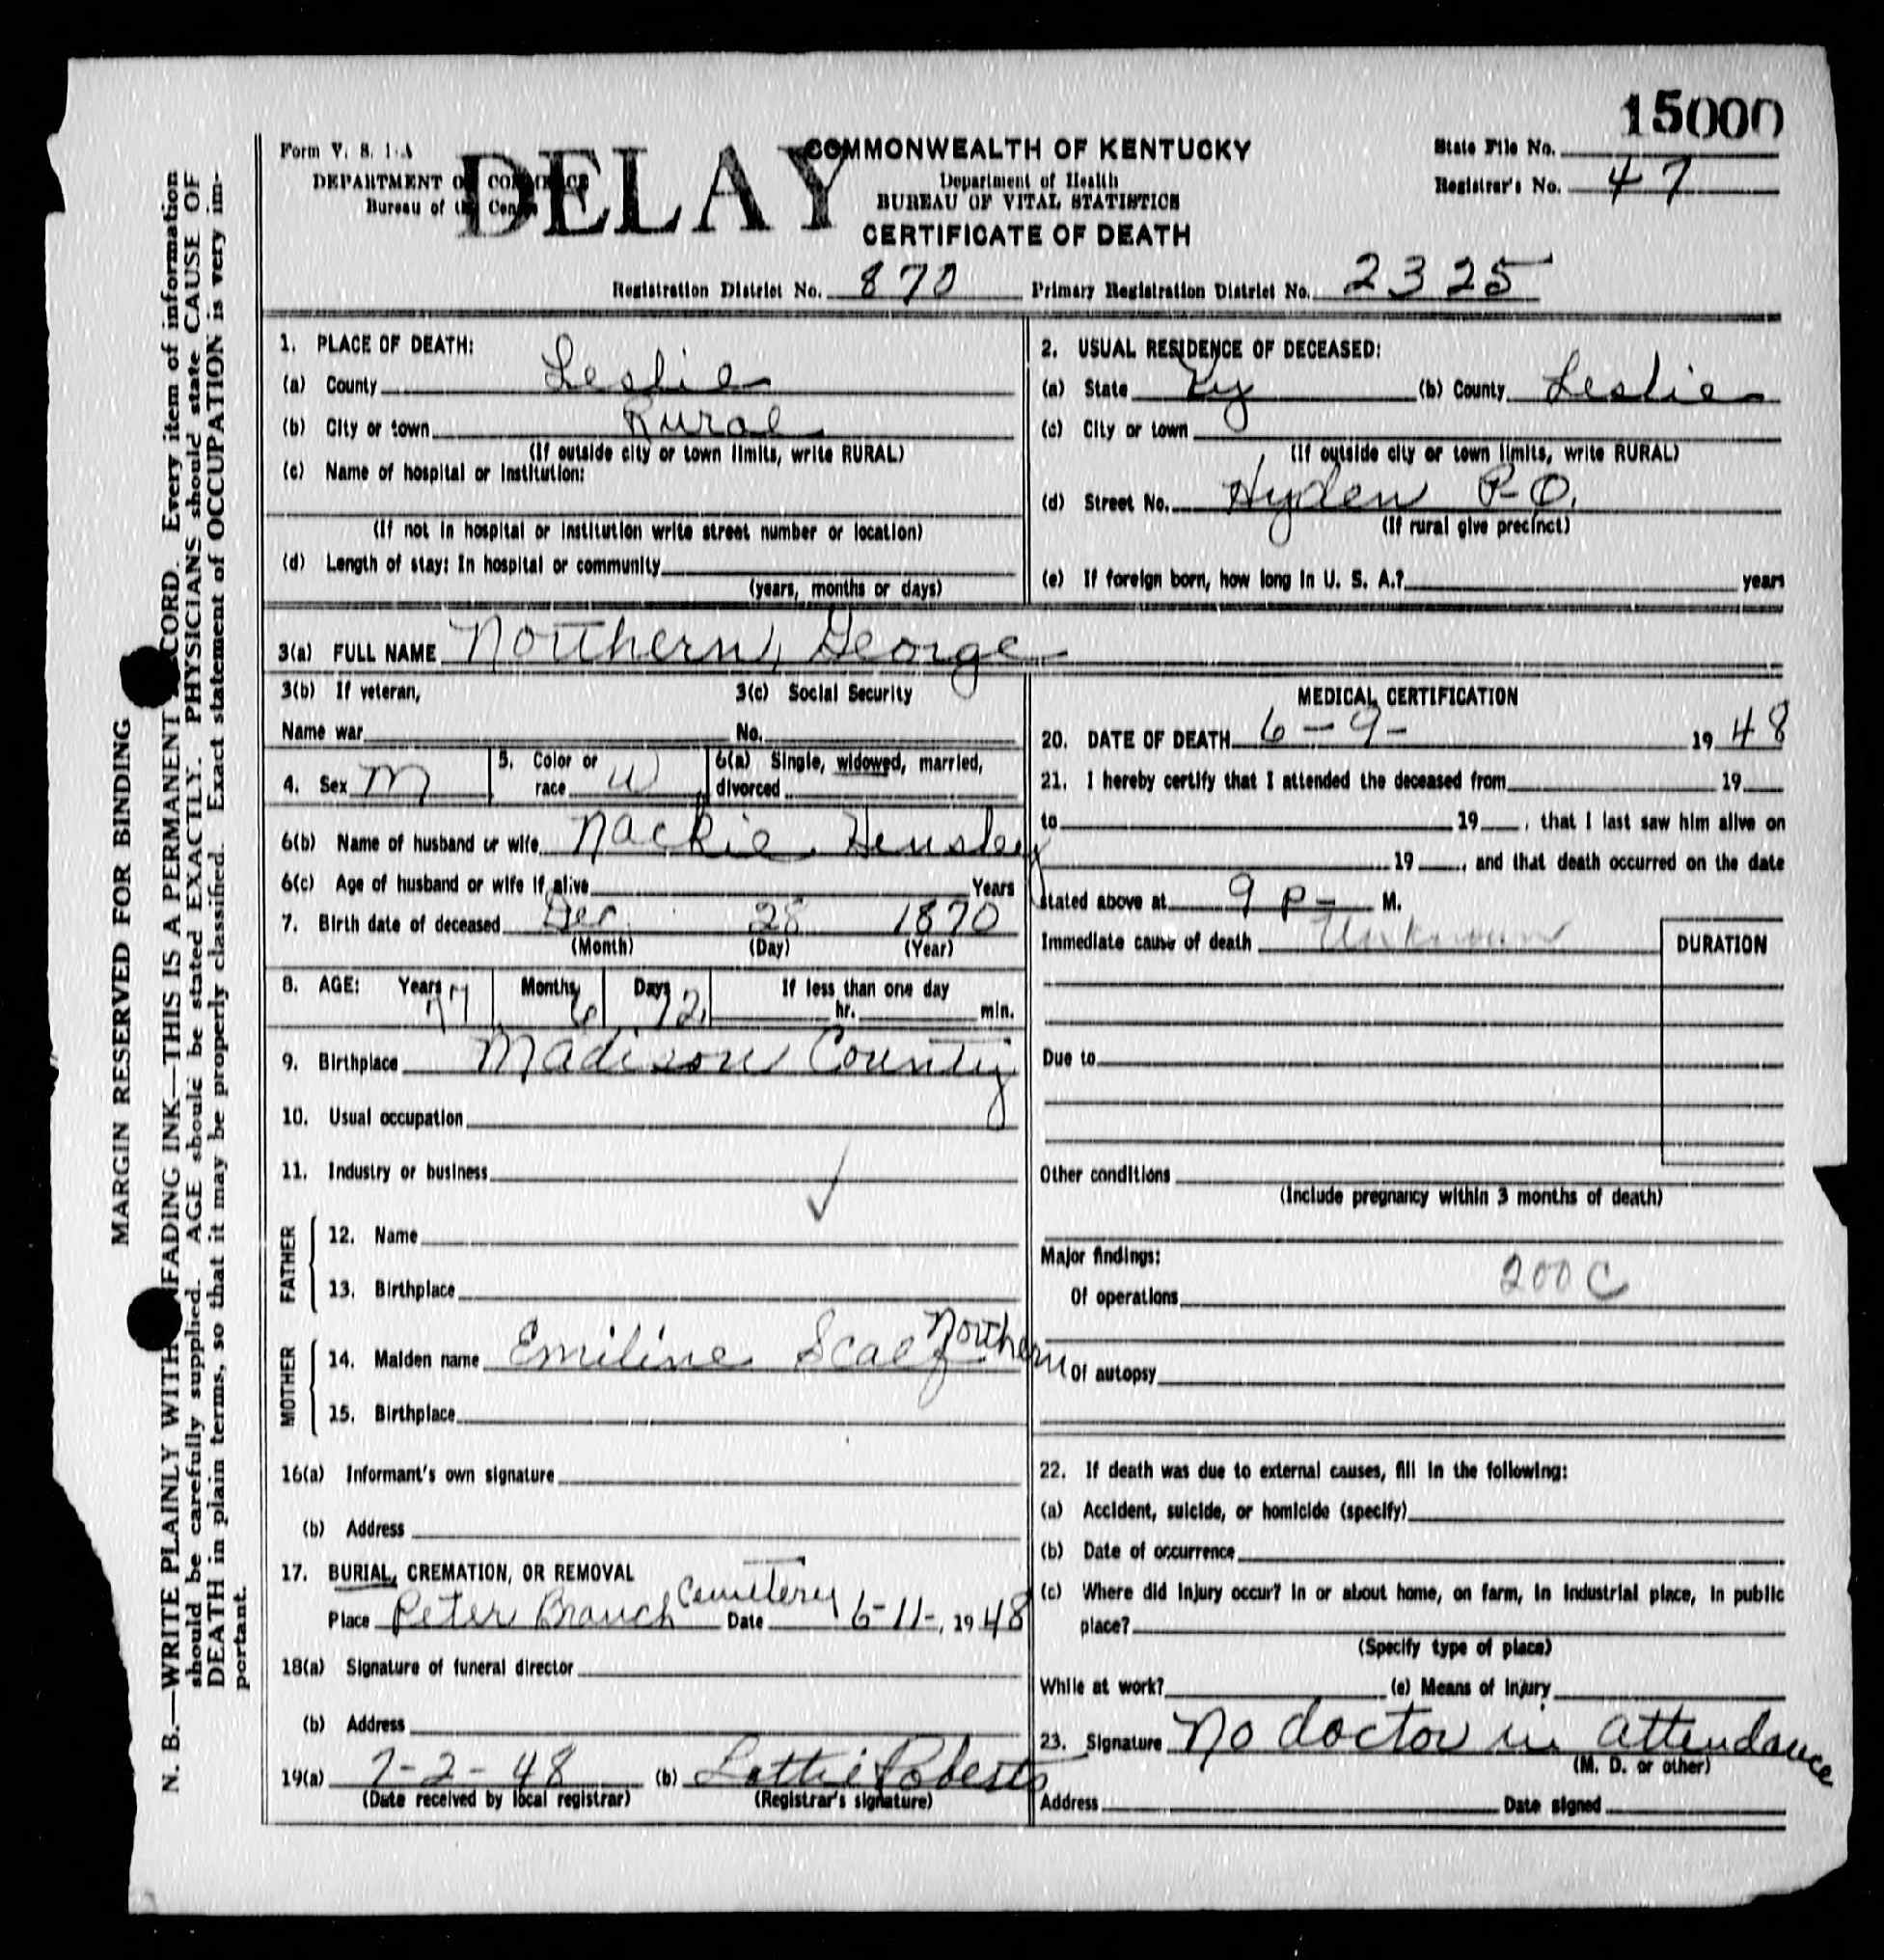 15000
Form V. S. 1-A
DELAY
COMMONWEALTH OF KENTUCKY
State File No.
DEPARTMENT OF COMMERCE
Department of Health
Registrar's No. 47
Bureau of the Census
BUREAU OF VITAL STATISTICS
CERTIFICATE OF DEATH
Registration District No. 870 Primary Registration District No. 2325
1. PLACE OF DEATH:
(a) County Leslie
(b) City or town Rural
(If outside city or town limits, write RURAL)
(c) Name of hospital or institution:
(If not in hospital or institution write street number or location)
(d) Length of stay: In hospital or community
(years, months or days)
2. USUAL RESIDENCE OF DECEASED:
(a) State Ky (b) County Leslie
(c) City or town
(If outside city or town limits, write RURAL)
(d) Street No. Hyden P-O.
(If rural give precinct)
(e) If foreign born, how long in U. S. A.? years
3(a) FULL NAME Northern, George
3(b) If veteran, 3(c) Social Security
Name war No.
4. Sex M 5. Color or race W 6(a) Single, widowed, married, divorced
6(b) Name of husband or wife Nackie Hensley
6(c) Age of husband or wife if alive Years
7. Birth date of deceased Dec 28 1870
(Month) (Day) (Year)
8. AGE: Years 77 Months 6 Days 12 If less than one day
hr. min.
9. Birthplace Madison County
10. Usual occupation
11. Industry or business
FATHER
12. Name
13. Birthplace
MOTHER
14. Maiden name Emiline Scalf Northern
15. Birthplace
16(a) Informant's own signature
(b) Address
17. BURIAL, CREMATION, OR REMOVAL
Place Peter Branch Cemetery Date 6-11-, 1948
18(a) Signature of funeral director
(b) Address
19(a) 7-2-48 (b) Lottie Roberts
(Date received by local registrar) (Registrar's signature)
MEDICAL CERTIFICATION
20. DATE OF DEATH 6-9- 1948
21. I hereby certify that I attended the deceased from 19
to 19 , that I last saw him alive on
19 , and that death occurred on the date
stated above at 9 P- M.
Immediate cause of death Unknown DURATION
Due to
Other conditions
(Include pregnancy within 3 months of death)
Major findings:
200C
Of operations
Of autopsy
22. If death was due to external causes, fill in the following:
(a) Accident, suicide, or homicide (specify)
(b) Date of occurrence
(c) Where did injury occur? In or about home, on farm, in industrial place, in public
place?
(Specify type of place)
While at work? (e) Means of injury
23. Signature No doctor in attendance
(M. D. or other)
Address Date signed
MARGIN RESERVED FOR BINDING
N. B.—WRITE PLAINLY WITH UNFADING INK—THIS IS A PERMANENT RECORD. Every item of information
should be carefully supplied. AGE should be stated EXACTLY. PHYSICIANS should state CAUSE OF
DEATH in plain terms, so that it may be properly classified. Exact statement of OCCUPATION is very im-
portant.